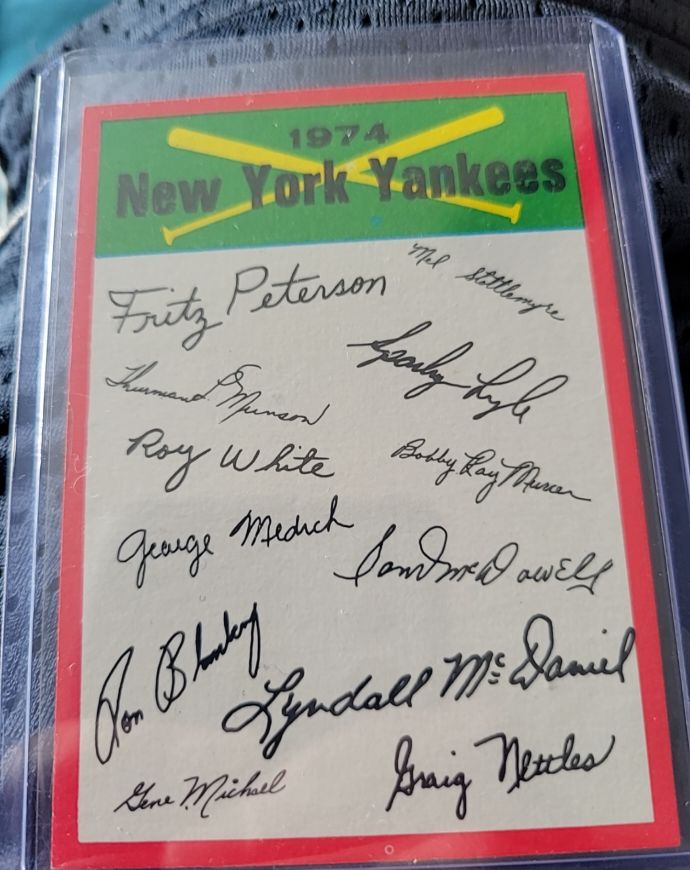 1974
New York Yankees
Mel Stottlemyre
Fritz Peterson
Sparky Lyle
Thurman L Munson
Roy White
Bobby Ray Murcer
George Medich
Sam McDowell
Ron Blomberg
Lyndall McDaniel
Gene Michael
Graig Nettles